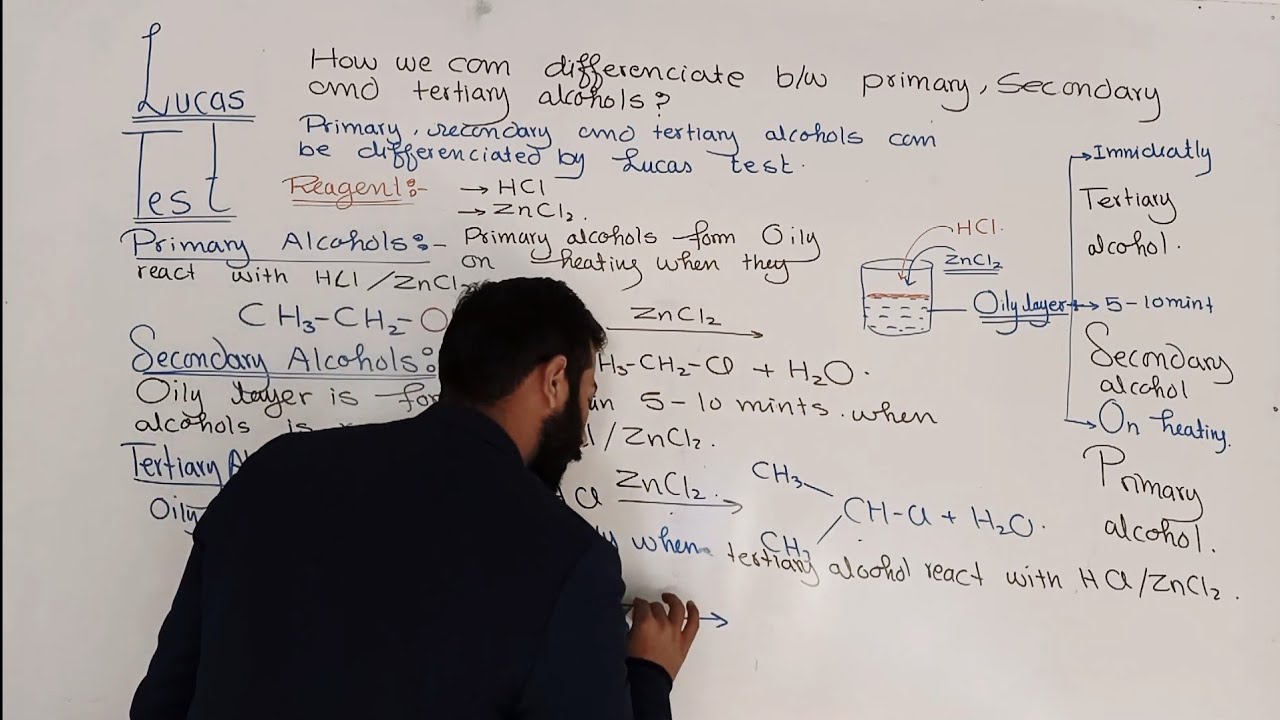 Lucas
Test
How we can differenciate b/w primary, Secondary
and tertiary alcohols?
Primary, secondary and tertiary alcohols can
be differenciated by Lucas test.
Reagent:-
→ HCl
→ ZnCl2.
Primary Alcohols:- Primary alcohols form Oily
on heating when they
react with HCl/ZnCl2
CH3-CH2-O
ZnCl2
H3-CH2-Cl + H2O.
Secondary Alcohols:
Oily layer is
5-10 mints. when
alcohols is
/ZnCl2.
Tertiary
Cl ZnCl2.
CH3
CH-Cl + H2O.
CH3
Oily
when tertiary alcohol react with HCl/ZnCl2.
HCl.
ZnCl2
Oily layer
→ Immidiatly
Tertiary
alcohol.
→ 5-10 mint
Secondary
alcohol
→ On heating.
Primary
alcohol.